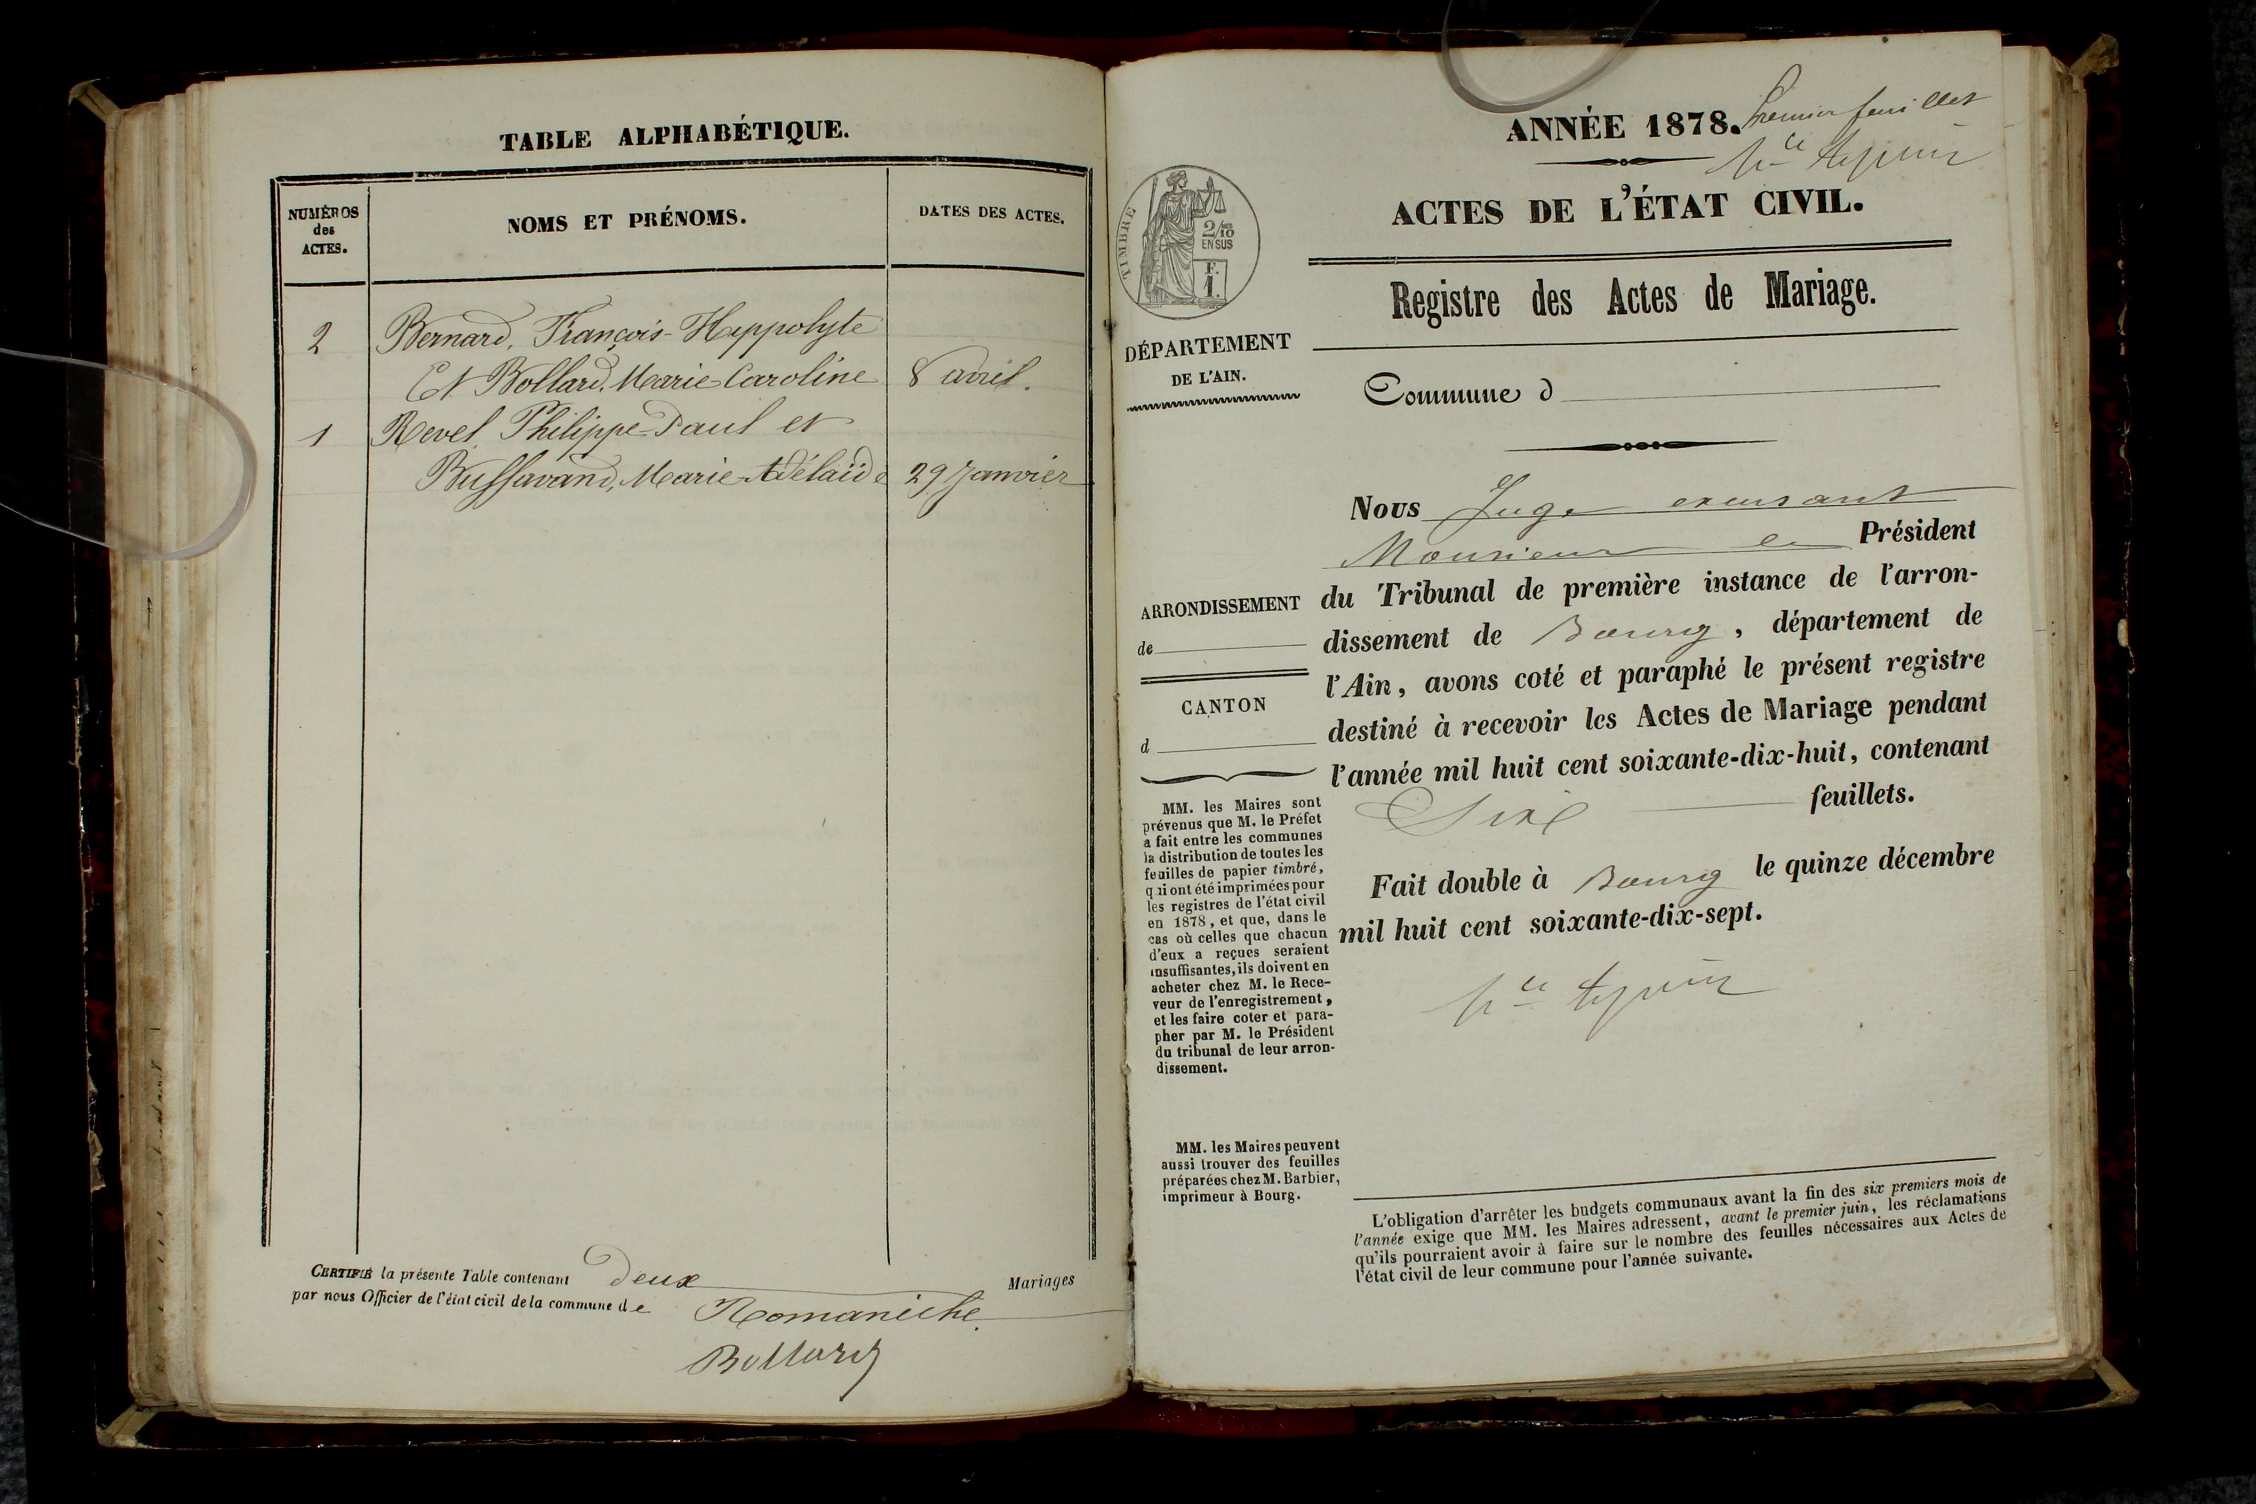 TABLE ALPHABÉTIQUE.
NUMÉROS
des
ACTES.
NOMS ET PRÉNOMS.
DATES DES ACTES.
2 Bernard, François-Hyppolyte
Et Bollard, Marie-Caroline 8 avril.
1 Revel, Philippe-Paul et
Buffavand, Marie-Adélaïde 29 Janvier
CERTIFIÉ la présente Table contenant deux Mariages
par nous Officier de l'état civil de la commune de Romanèche.
Bollard
ANNÉE 1878. Premier feuillet
ACTES DE L'ÉTAT CIVIL.
TIMBRE
2/10
EN SUS
F.
1.
Registre des Actes de Mariage.
DÉPARTEMENT
DE L'AIN.
Commune d
Nous Juge excusant
Monsieur le Président
du Tribunal de première instance de l'arron-
dissement de Bourg, département de
l'Ain, avons coté et paraphé le présent registre
destiné à recevoir les Actes de Mariage pendant
l'année mil huit cent soixante-dix-huit, contenant
Six feuillets.
Fait double à Bourg le quinze décembre
mil huit cent soixante-dix-sept.
ARRONDISSEMENT
de
CANTON
d
MM. les Maires sont
prévenus que M. le Préfet
a fait entre les communes
la distribution de toutes les
feuilles de papier timbré,
qui ont été imprimées pour
les registres de l'état civil
en 1878, et que, dans le
cas où celles que chacun
d'eux a reçues seraient
insuffisantes, ils doivent en
acheter chez M. le Rece-
veur de l'enregistrement,
et les faire coter et para-
pher par M. le Président
du tribunal de leur arron-
dissement.
MM. les Maires peuvent
aussi trouver des feuilles
préparées chez M. Barbier,
imprimeur à Bourg.
L'obligation d'arrêter les budgets communaux avant la fin des six premiers mois de
l'année exige que MM. les Maires adressent, avant le premier juin, les réclamations
qu'ils pourraient avoir à faire sur le nombre des feuilles nécessaires aux Actes de
l'état civil de leur commune pour l'année suivante.